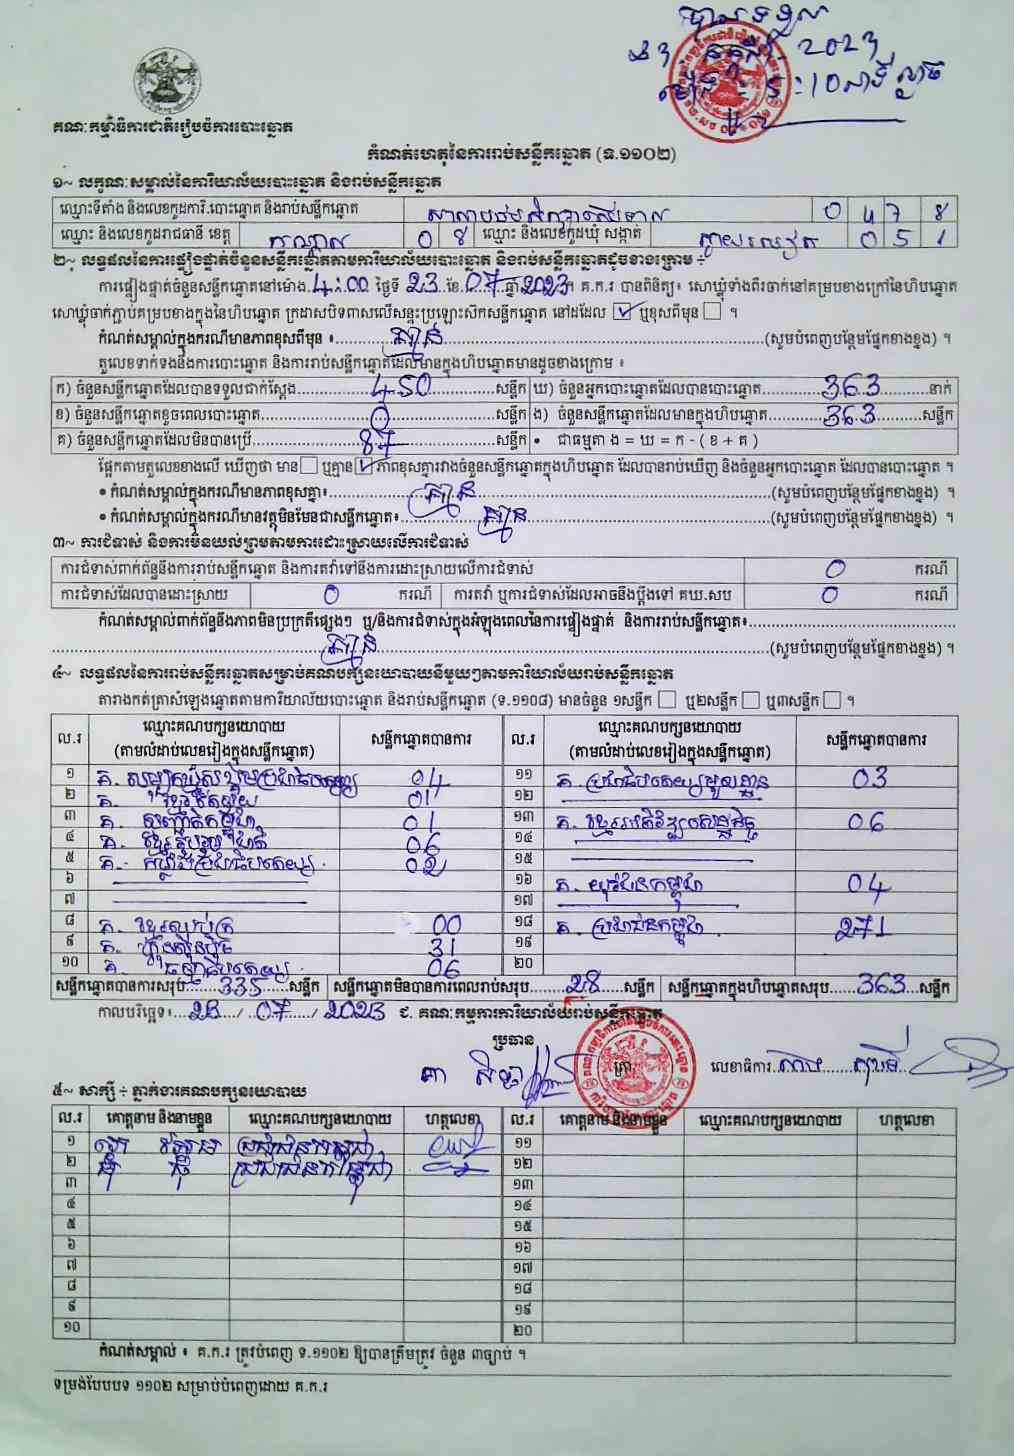 បានទទួល
23 កក្កដា 2023
ម៉ោង 5:10នាទី ល្ងាច
គណៈកម្មាធិការជាតិរៀបចំការបោះឆ្នោត
កំណត់ហេតុនៃការរាប់សន្លឹកឆ្នោត (ទ.១១០២)
១~ លក្ខណៈសម្គាល់នៃការិយាល័យបោះឆ្នោត និងរាប់សន្លឹកឆ្នោត
ឈ្មោះទីតាំង និងលេខកូដការិ.បោះឆ្នោត និងរាប់សន្លឹកឆ្នោត 0 4 7 8
ឈ្មោះ និងលេខកូដរាជធានី ខេត្ត កណ្តាល 0 8 ឈ្មោះ និងលេខកូដឃុំ សង្កាត់ 0 5 1
២~ លទ្ធផលនៃការផ្ទៀងផ្ទាត់ចំនួនសន្លឹកឆ្នោតតាមការិយាល័យបោះឆ្នោត និងរាប់សន្លឹកឆ្នោតដូចខាងក្រោម ÷
ការផ្ទៀងផ្ទាត់ចំនួនសន្លឹកឆ្នោតនៅម៉ោង 4:00 ថ្ងៃទី 23 ខែ 07 ឆ្នាំ 2023 ។ គ.ក.រ បានពិនិត្យ៖ សោឃ្លុំទាំងពីរចាក់នៅគម្របខាងក្រៅនៃហិបឆ្នោត
សោឃ្លុំចាក់ភ្ជាប់គម្របខាងក្នុងនៃហិបឆ្នោត ក្រដាសបិទពាសលើសន្ទះប្រឡោះសៀកសន្លឹកឆ្នោត នៅដដែល ☑ ឬខុសពីមុន ☐ ។
កំណត់សម្គាល់ក្នុងករណីមានភាពខុសពីមុន ៖ គ្មាន (សូមបំពេញបន្ថែមផ្នែកខាងខ្នង) ។
តួលេខទាក់ទងនឹងការបោះឆ្នោត និងការរាប់សន្លឹកឆ្នោតដែលមានក្នុងហិបឆ្នោតមានដូចខាងក្រោម ៖
ក) ចំនួនសន្លឹកឆ្នោតដែលបានទទួលជាក់ស្តែង 450 សន្លឹក ឃ) ចំនួនអ្នកបោះឆ្នោតដែលបានបោះឆ្នោត 363 នាក់
ខ) ចំនួនសន្លឹកឆ្នោតខូចពេលបោះឆ្នោត 0 សន្លឹក ង) ចំនួនសន្លឹកឆ្នោតដែលមានក្នុងហិបឆ្នោត 363 សន្លឹក
គ) ចំនួនសន្លឹកឆ្នោតដែលមិនបានប្រើ 87 សន្លឹក • ជាធម្មតា ង = ឃ = ក - ( ខ + គ )
ផ្អែកតាមតួលេខខាងលើ ឃើញថា មាន ☐ ឬគ្មាន ☑ ភាពខុសគ្នារវាងចំនួនសន្លឹកឆ្នោតក្នុងហិបឆ្នោត ដែលបានរាប់ឃើញ និងចំនួនអ្នកបោះឆ្នោត ដែលបានបោះឆ្នោត ។
• កំណត់សម្គាល់ក្នុងករណីមានភាពខុសគ្នា៖ គ្មាន (សូមបំពេញបន្ថែមផ្នែកខាងខ្នង) ។
• កំណត់សម្គាល់ក្នុងករណីមានវត្ថុមិនមែនជាសន្លឹកឆ្នោត៖ គ្មាន (សូមបំពេញបន្ថែមផ្នែកខាងខ្នង) ។
៣~ ការជំទាស់ និងការមិនយល់ព្រមតាមការដោះស្រាយលើការជំទាស់
ការជំទាស់ពាក់ព័ន្ធនឹងការរាប់សន្លឹកឆ្នោត និងការតវ៉ាទៅនឹងការដោះស្រាយលើការជំទាស់ 0 ករណី
ការជំទាស់ដែលបានដោះស្រាយ 0 ករណី ការតវ៉ា ឬការជំទាស់ដែលអាចនឹងប្តឹងទៅ គឃ.សប 0 ករណី
កំណត់សម្គាល់ពាក់ព័ន្ធនឹងភាពមិនប្រក្រតីផ្សេងៗ ឬ/និងការជំទាស់ក្នុងអំឡុងពេលនៃការផ្ទៀងផ្ទាត់ និងការរាប់សន្លឹកឆ្នោត៖
គ្មាន (សូមបំពេញបន្ថែមផ្នែកខាងខ្នង) ។
៤~ លទ្ធផលនៃការរាប់សន្លឹកឆ្នោតសម្រាប់គណបក្សនយោបាយនីមួយៗតាមការិយាល័យរាប់សន្លឹកឆ្នោត
តារាងកត់ត្រាសំឡេងឆ្នោតតាមការិយាល័យបោះឆ្នោត និងរាប់សន្លឹកឆ្នោត (ទ.១១០៨) មានចំនួន ១សន្លឹក ☐ ឬ២សន្លឹក ☐ ឬ៣សន្លឹក ☐ ។
ល.រ ឈ្មោះគណបក្សនយោបាយ (តាមលំដាប់លេខរៀងក្នុងសន្លឹកឆ្នោត) សន្លឹកឆ្នោតបានការ ល.រ ឈ្មោះគណបក្សនយោបាយ (តាមលំដាប់លេខរៀងក្នុងសន្លឹកឆ្នោត) សន្លឹកឆ្នោតបានការ
១ 04 ១១ គ. ប្រជាធិបតេយ្យមូលដ្ឋាន 03
២ គ. 01 ១២
៣ គ. 01 ១៣ គ. ខ្មែរអភិវឌ្ឍន៍សេដ្ឋកិច្ច 06
៤ គ. ខ្មែររួបរួមជាតិ 06 ១៤
៥ គ. កម្លាំងប្រជាធិបតេយ្យ 02 ១៥
៦ ១៦ គ. យុវជនកម្ពុជា 04
៧ ១៧
៨ គ. 00 ១៨ គ. ប្រជាជនកម្ពុជា 271
៩ គ. ហ៊្វុនស៊ិនប៉ិច 31 ១៩
១០ គ. ធម្មាធិបតេយ្យ 06 ២០
សន្លឹកឆ្នោតបានការសរុប 335 សន្លឹក សន្លឹកឆ្នោតមិនបានការពេលរាប់សរុប 28 សន្លឹក សន្លឹកឆ្នោតក្នុងហិបឆ្នោតសរុប 363 សន្លឹក
កាលបរិច្ឆេទ៖ 23 / 07 / 2023 ជ. គណៈកម្មការការិយាល័យរាប់សន្លឹកឆ្នោត
ប្រធាន
ត្រា លេខាធិការ
៥~ សាក្សី ÷ ភ្នាក់ងារគណបក្សនយោបាយ
ល.រ គោត្តនាម និងនាមខ្លួន ឈ្មោះគណបក្សនយោបាយ ហត្ថលេខា ល.រ គោត្តនាម និងនាមខ្លួន ឈ្មោះគណបក្សនយោបាយ ហត្ថលេខា
១ ប្រជាជនកម្ពុជា ១១
២ ប្រជាជនកម្ពុជា ១២
៣ ១៣
៤ ១៤
៥ ១៥
៦ ១៦
៧ ១៧
៨ ១៨
៩ ១៩
១០ ២០
កំណត់សម្គាល់ ៖ គ.ក.រ ត្រូវបំពេញ ទ.១១០២ ឱ្យបានត្រឹមត្រូវ ចំនួន ៣ច្បាប់ ។
ទម្រង់បែបបទ ១១០២ សម្រាប់បំពេញដោយ គ.ក.រ